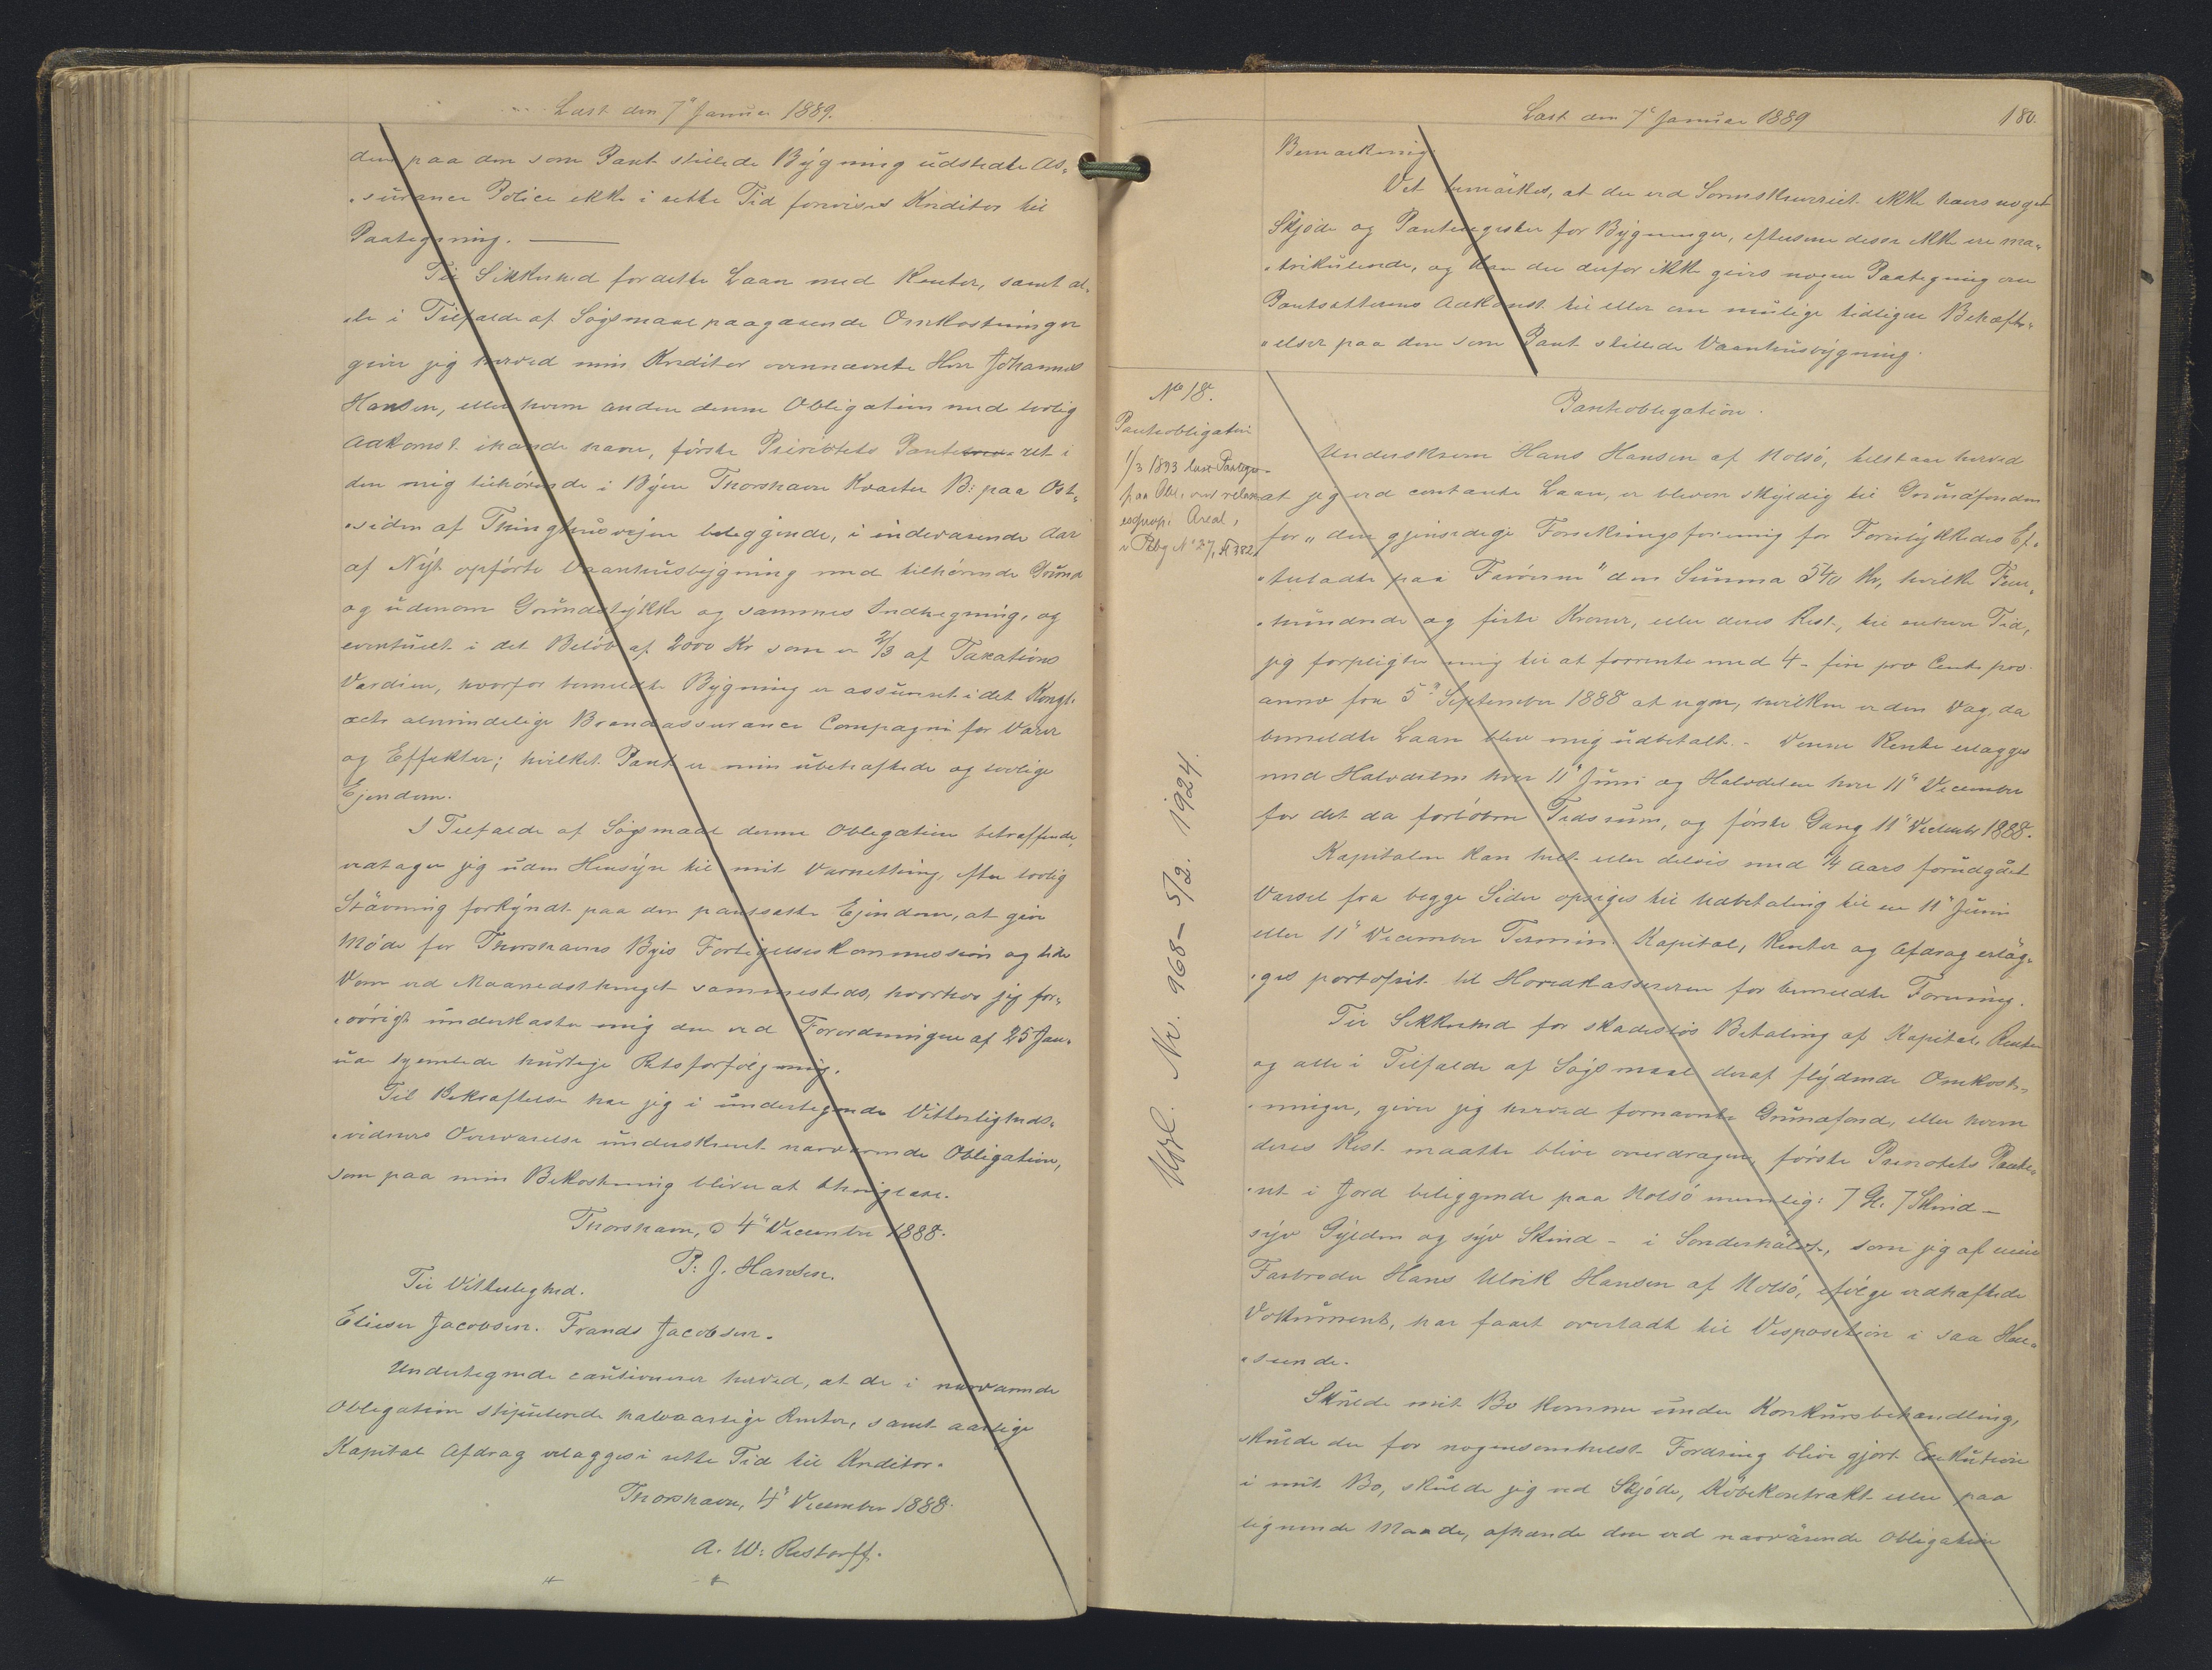 Læst den 7" Januar 1889.
den paa den som Pant stillede Bygning udstedte As-
surance Police ikke i rette Tid forevises Kreditor til
Paategning.
Til Sikkerhed for dette Laan med Renter, samt al-
le i Tilfælde af Søgsmaal paagaaende Omkostninger
giver jeg herved min Kreditor ovennævnte Herr Johannes
Hansen, eller hvem anden denne Obligation med lovlig
Adkomst ihænde haver, første Prioritets Panteret i
den mig tilhørende i Byen Thorshavn Kvarter B: paa Øst-
siden af Thinghusvejen beliggende, i indeværende Aar
af Nyt opførte Vaanhusbygning med tilhørende Grund
og udenom Grundstykke og sammes Indhegning, og
eventuelt i det Beløb af 2000 Kr som er 2/3 af Taxations
Værdien, hvorfor bemeldte Bygning er assureret i det Kongl.
octr. almindelige Brandassurance Compagni for Varer
og Effekter; hvilket Pant er min ubehæftede og lovlige
Ejendom.
I Tilfælde af Søgsmaal denne Obligation betræffende,
vedtager jeg uden Hensyn til mit Værnething, efter lovlig
Stævning forkyndt paa den pantsatte Ejendom, at give
Møde for Thorshavns Byes Forligelseskommission og lide
Dom ved Maanedsthinget sammesteds, hvorhos jeg for-
øvrigt underkaster mig den ved Forordningen af 25 Jan-
uar hjemlede hurtige Retsforfølgning.
Til Bekræftelse har jeg i undertegnede Vitterligheds-
vidners Overværelse underskrevet nærværende Obligation,
som paa min Bekostning bliver at thinglæse.
Thorshavn, d 4" December 1888.
P: J. Hansen.
Til Vitterlighed.
Elieser Jacobsen. Frands Jacobsen.
Undertegnede cautionerer herved, at de i nærværende
Obligation stipulerede halvaarlige Renter, samt aarlige
Kapital Afdrag erlægges i rette Tid til Kreditor.
Thorshavn, 4" December 1888.
A. W: Restorff.
Læst den 7" Januar 1889
180.
Bemærkning
Det bemærkes, at der ved Sorenskriveriet ikke haves noget
Skjøde og Panteregister for Bygninger, eftersom disse ikke ere ma-
trikulerede, og kan der derfor ikke gives nogen Paategning om
Pantsætterens Adkomst til eller om mulige tidligere Behæft-
elser paa den som Pant stillede Vaanhusbygning.
No 18.
Panteobligation
1/3 1893 læst Paategn.
paa Obl.
Areal,
Panteobligation.
Underskrevne Hans Hansen af Nolsø, tilstaar herved
at jeg ved contante Laan, er bleven skyldig til Grundfonden
for „den gjensidige Forsikringsforening for Forulykkedes Ef-
terladte paa Færøerne" den Summa 540 Kr, hvilke Fem-
hundrede og firti Kroner, eller deres Rest, til enhver Tid,
jeg forpligter mig til at forrente med 4 - fire pro Cent pro
anno fra 5" September 1888 at regne, hvilken er den Dag, da
bemeldte Laan blev mig udbetalt. - Denne Rente erlægges
med Halvdelen hver 11" Juni og Halvdelen hver 11" December
for det da forløbne Tidsrum, og første Gang 11" December 1888.
Kapitalen kan helt eller delvis med 1/4 Aars forudgået
Varsel fra begge Sider opsiges til Udbetaling til en 11" Juni
eller 11" December Termin. Kapital, Renter og Afdrag erlæg-
ges portofrit til Hovedkassereren for bemeldte Forening.
Til Sikkerhed for skadesløs Betaling af Kapital, Renter
og alle i Tilfælde af Søgsmaal deraf flydende Omkost-
ninger, giver jeg herved fornævnte Grundfond, eller hvem
deres Rest maatte blive overdragen, første Prioritets Pante-
ret i Jord beliggende paa Nolsø nemlig: 7 Gl. 7 Skind -
syv Gylden og syv Skind - i Sønderhålvt, som jeg af min
Farbroder Hans Ulrik Hansen af Nolsø, ifølge vedhæftede
Dokument, har faaet overladt til Disposition i saa Hen-
seende.
Skulde mit Bo komme under Konkursbehandling,
skulde der for nogensomhelst Fordring blive gjort Exekution
i mit Bo, skulde jeg ved Skjøde, Købekontrakt eller paa
lignende Maade, afhænde den ved nærværende Obligation
Udsl. Nr. 968 - 5/2. 1924.